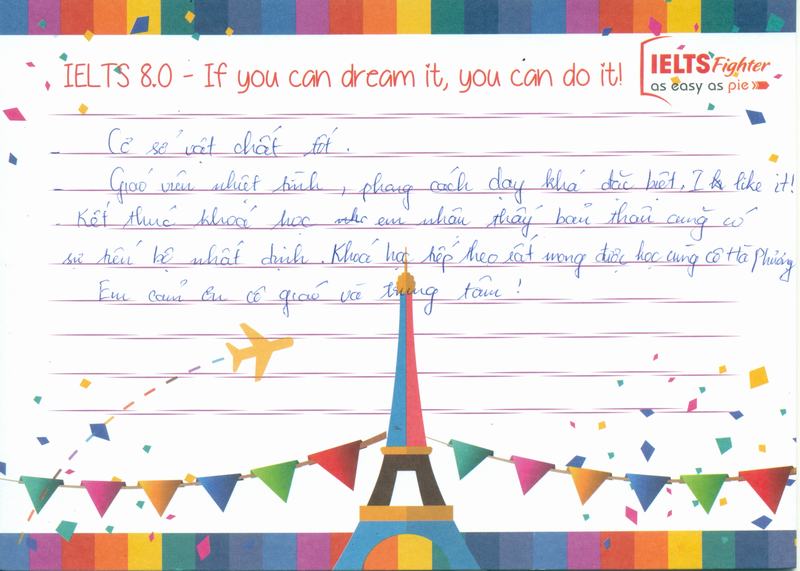 IELTS 8.0 - If you can dream it, you can do it!
IELTS Fighter
as easy as pie
- Cơ sở vật chất tốt.
- Giáo viên nhiệt tình, phong cách dạy khá đặc biệt. I like it!
- Kết thúc khoá học em nhận thấy bản thân cũng có
sự tiến bộ nhất định. Khoá học tiếp theo rất mong được học cùng cô Hà Phương
Em cảm ơn cô giáo và trung tâm!